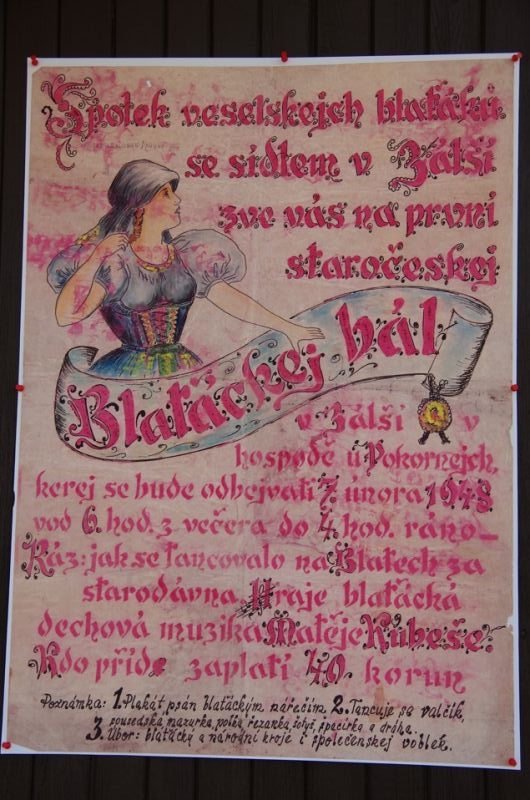 Spolek veselskejch blaťáků
se sídlem v Zálší
zve vás na první
staročeskej
Blaťáckej bál
v Zálší v
hospodě u Pokornejch,
kerej se bude odbejvati 7. února 1948
vod 6. hod. z večera do 4. hod. ráno—
Ráz: jak se tancovalo na Blatech za
starodávna. Hraje blaťácká
dechová muzika Matěje Kubeše.
Kdo příde zaplatí 40. korun
Poznámka: 1. Plakát psán blaťáckým nářečím 2. Tancuje sa valčík,
sousedská, mazurka, polka, řezanka, šotyš, špacírka a dráha.
3. Úbor: blaťácký a národní kroje i společenskej voblek.